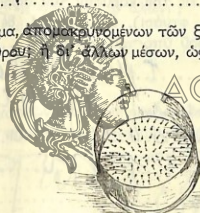 μα, ἀπομακρυνομένων τῶν ξ
θρου; ἢ δι᾽ ἄλλων μέσων, ὡ